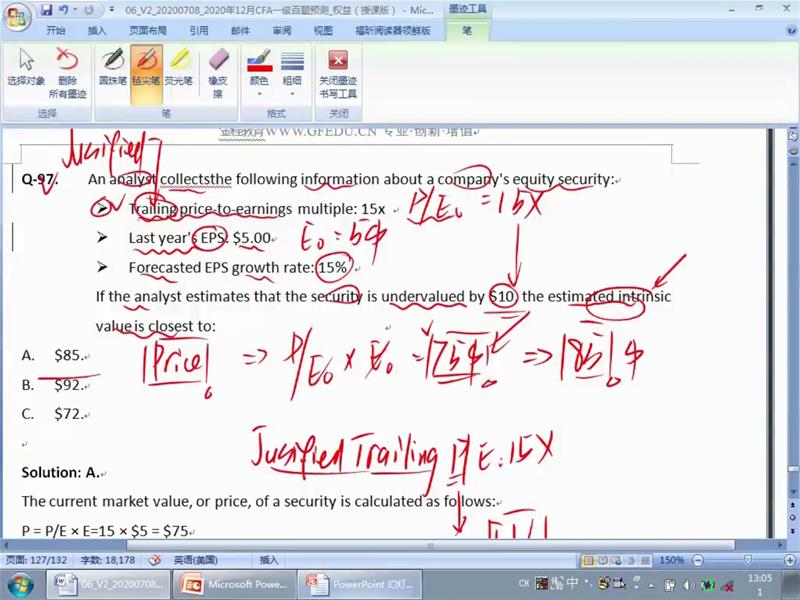 06_V2_20200708_2020年12月CFA一级百题预测_权益（授课版） - Mic...
墨迹工具
开始 插入 页面布局 引用 邮件 审阅 视图 福昕阅读器领鲜版 笔
选择对象 删除所有墨迹 圆珠笔 毡尖笔 荧光笔 橡皮擦 颜色 粗细 关闭墨迹书写工具
选择 笔 格式 关闭
金程教育WWW.GFEDU.CN 专业·创新·增值
Jusified
Q-97. An analyst collectsthe following information about a company's equity security:
Trailing price-to-earnings multiple: 15x P/E0 = 15X
Last year's EPS: $5.00 E0 = 5$
Forecasted EPS growth rate: 15%
If the analyst estimates that the security is undervalued by $10, the estimated intrinsic
value is closest to:
A. $85.
Price => P/E0 × E0 = 75$ => 85 $
B. $92.
C. $72.
Jusified Trailing P/E: 15X
Solution: A.
The current market value, or price, of a security is calculated as follows:
P = P/E × E=15 × $5 = $75
页面: 127/132 字数: 18,178 英语(美国) 插入 150%
06_V2_20200708... Microsoft Powe... PowerPoint 幻灯... CH 中 13:05
1